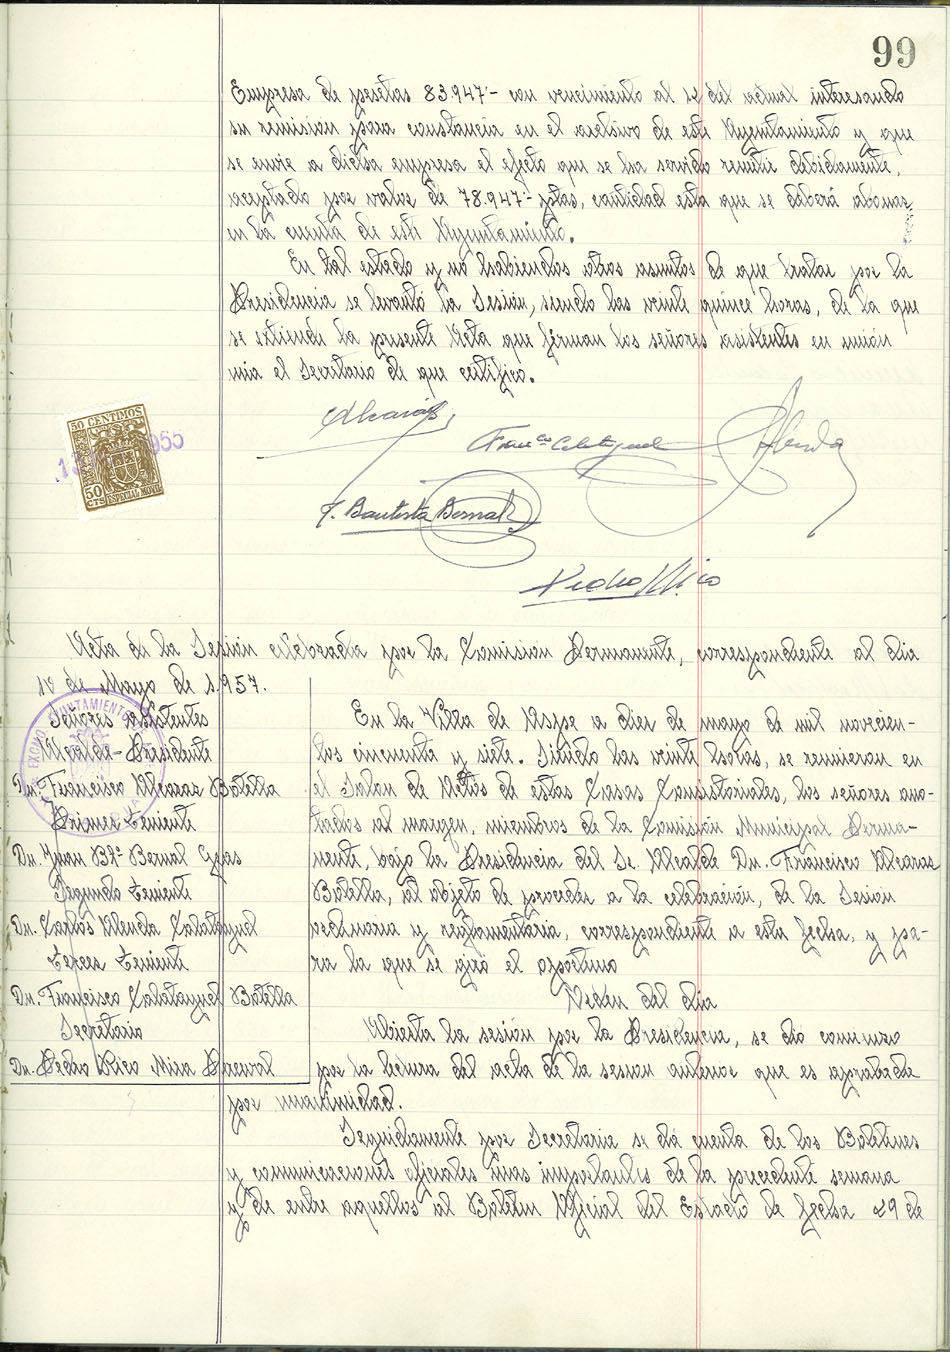 99
Empresa de pesetas 83.947'- con vencimiento al 12 del actual interesando
su remision para constancia en el archivo de este Ayuntamiento y que
se envie a dicha empresa el efecto que se ha servido remitir debidamente,
aceptado por valor de 78.947'- ptas, cantidad esta que se deberá abonar
en la cuenta de este Ayuntamiento.
En tal estado y no habiendos otros asuntos de que tratar por la
Presidencia se levantó la Sesión, siendo las veinte quince horas, de la que
se extiende la presente Acta que firman los señores asistentes en unión
mia el Secretario de que certifico.
50 CENTIMOS
50 CTS ESPECIAL MOVIL
Alcaraz
Franco Calatayud
Alenda
J. Bautista Bernal
Pedro Rico
Acta de la Sesión celebrada por la Comision Permanente, correspondiente al dia
10 de Mayo de 1.957.
Señores asistentes
Alcalde-Presidente
Dn. Francisco Alcaraz Botella
Primer Teniente
Dn. Juan Bta. Bernal
Segundo Teniente
Dn. Carlos Alenda Calatayud
Tercer Teniente
Dn. Francisco Calatayud Botella
Secretario
Dn. Pedro Rico Mira Perceval
En la Villa de Aspe a diez de mayo de mil novecien-
tos cincuenta y siete. Siendo las veinte horas, se reunieron en
el Salon de Actos de estas Casas Consistoriales, los señores ano-
tados al margen, miembros de la Comisión Municipal Perma-
nente, bajo la Presidencia del Sr. Alcalde Dn. Francisco Alcaraz
Botella, al objeto de proceder a la celebración, de la Sesion
ordinaria y reglamentaria, correspondiente a esta fecha, y pa-
ra la que se giró el oportuno
Orden del dia
Abierta la sesión por la Presidencia, se dió comienzo
por la lectura del acta de la sesion anterior que es aprobada
por unanimidad.
Seguidamente por Secretaria se dá cuenta de los Boletines
y comunicaciones oficiales mas importantes de la precedente semana
y de entre aquellos al Boletin Oficial del Estado de fecha 29 de